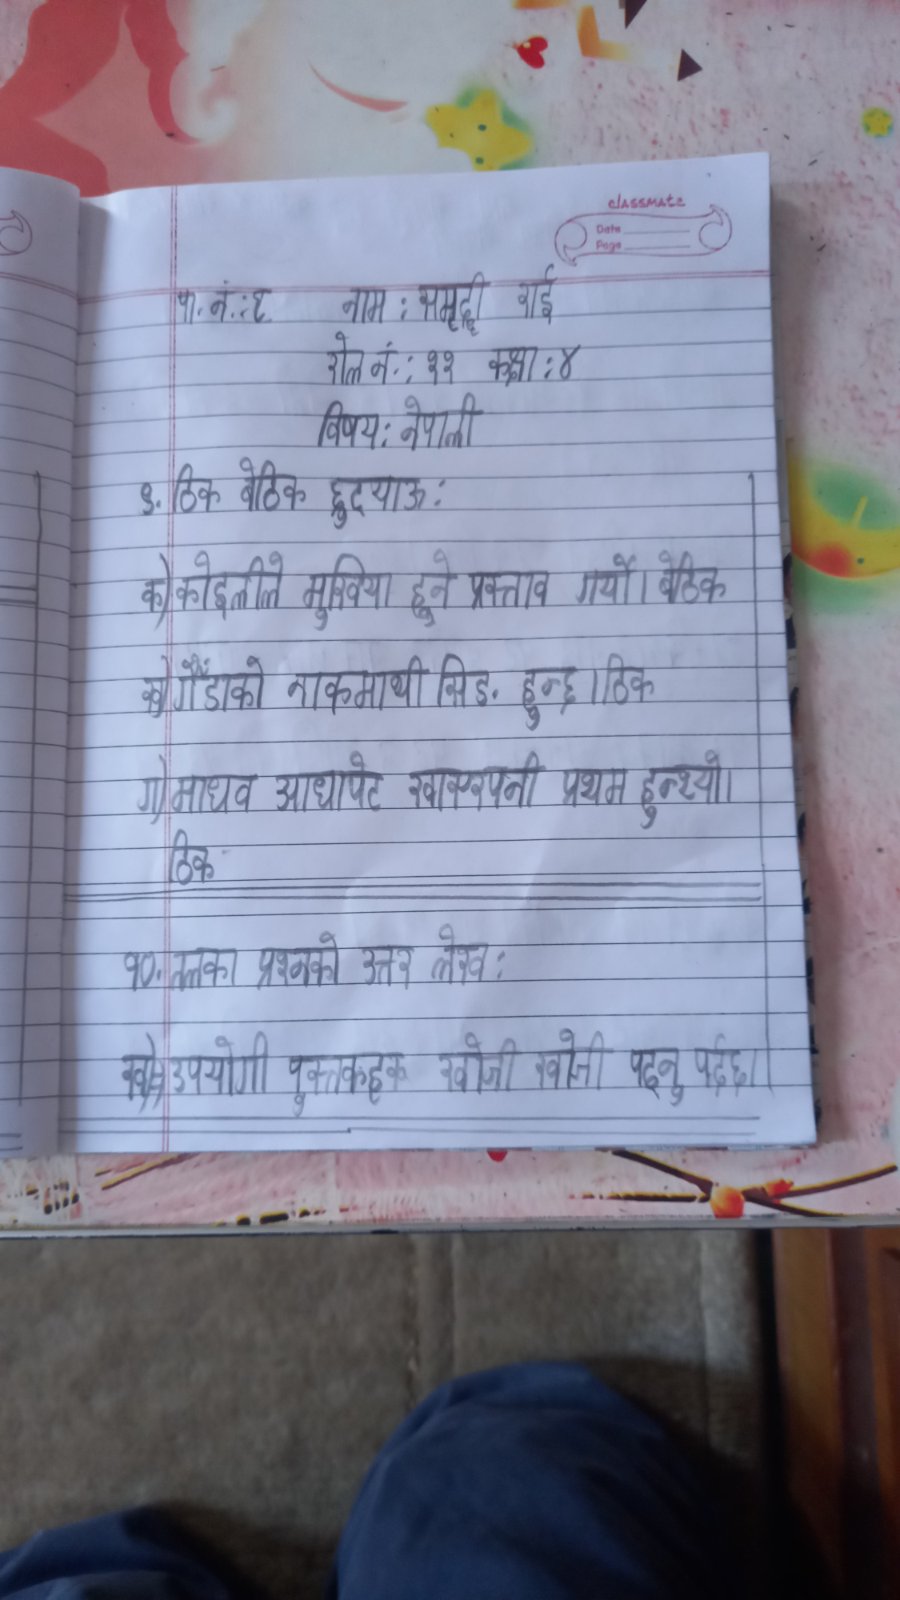 classmate
Date
Page
पा. नं.: ८ नाम : समृद्दी राई
रोल नं.: २२ कक्षा : ४
विषय: नेपाली
९. ठिक बेठिक छुट्याऊ:
क) कोइलीले मुखिया हुने प्रस्ताव गर्यो। बेठिक
ख) गैँडाको नाकमाथी सिङ. हुन्छ।ठिक
ग) माधव आधापेट खाएरपनी प्रथम हुन्थ्यो।
ठिक
१०. तलका प्रश्नको उत्तर लेख:
ख)→उपयोगी पुस्तकहरू खोजी खोजी पढ्नु पर्दछ।